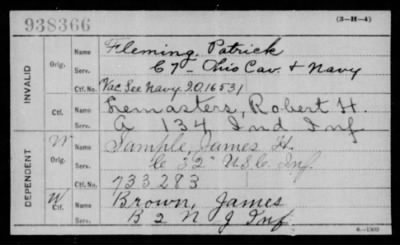 938366
(3-H-4)
INVALID
Orig. Name Fleming, Patrick
Serv. C 7 - Ohio Cav. & Navy
Ctf. No. Vac. See Navy I.O. 16531
Ctf. Name Lemasters, Robert H.
Serv. A 134 Ind Inf
DEPENDENT
W Orig. Name Sample, James H.
Serv. Co "32" U.S.C. Inf.
Ctf. No. 733283
W Ctf. Name Brown, James
Serv. B 2 N J Inf